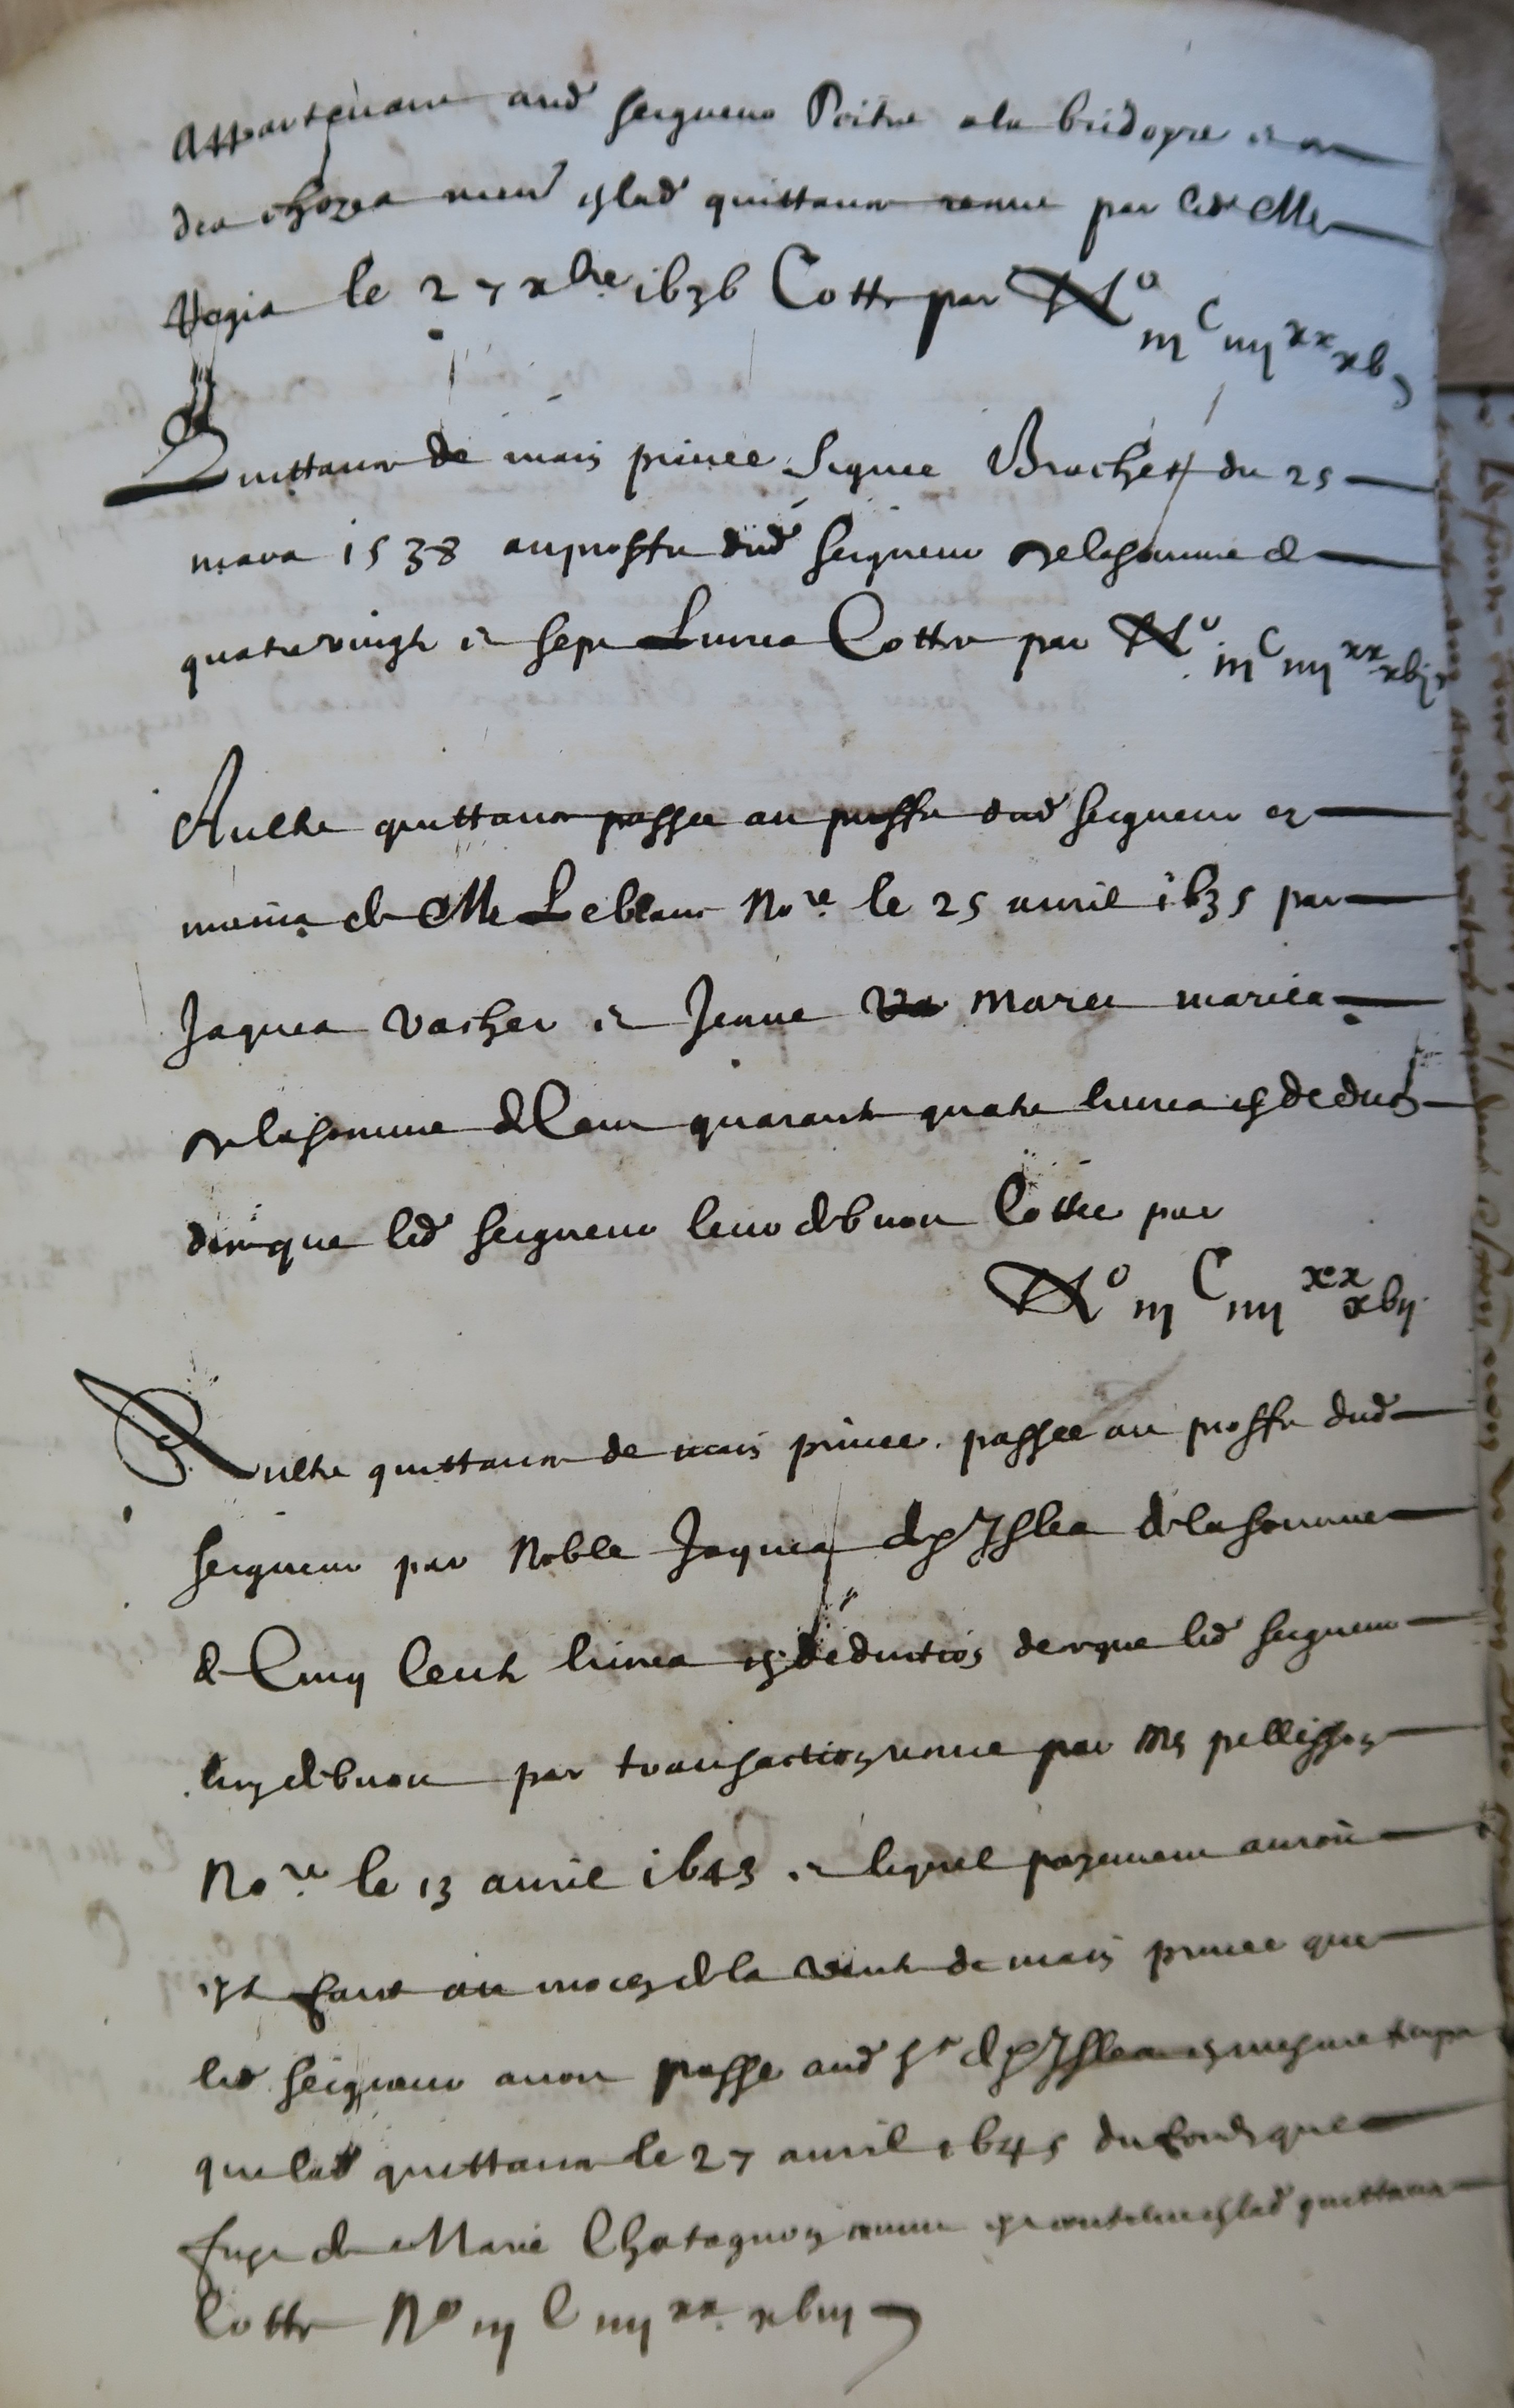 Appartenant aud seigneur Poitre a la bridoyre et
des chozes men{d} en lad quittance receue par led Me
Hegis le 27 xbre 1636 Cotte par No iijC iiijxx xv
Quittance de main privee signee Brochet du 25
mars 1538 au proffit dud seigneur de la somme de
quatre vingt et sept Livres Cottee par No iijC iiijxx xvj
Aultre quittance passee au proffit dud seigneur es
mains de Me Leblanc Nore le 25 avril 1635 par
Jaques Vacher et Jeanne Marce mariés
de la somme de Cent quarante quatre livres en deduction
de ce que led seigneur leur debvoit Cottee par
No iij C iiij xx xvij
Aultre quittance de main privee passee au proffit dud
seigneur par Noble Jaques des Isles de la somme
de Cinq Cents livres en deduction de ce que led seigneur
luy debvoit par transaction receue par Me pellisson
Nore le 13 avril 1643 et lequel payement auroit
esté faict au moyen de la vente de main privee que
led seigneur avoit passe aud Sr des Isles en mesme temps
que lad quittance le 27 avril 1645 du fonds que
fust de Marie Chatagnon comme est contenu en lad quittance
Cotte No iij C iiij xx xviij